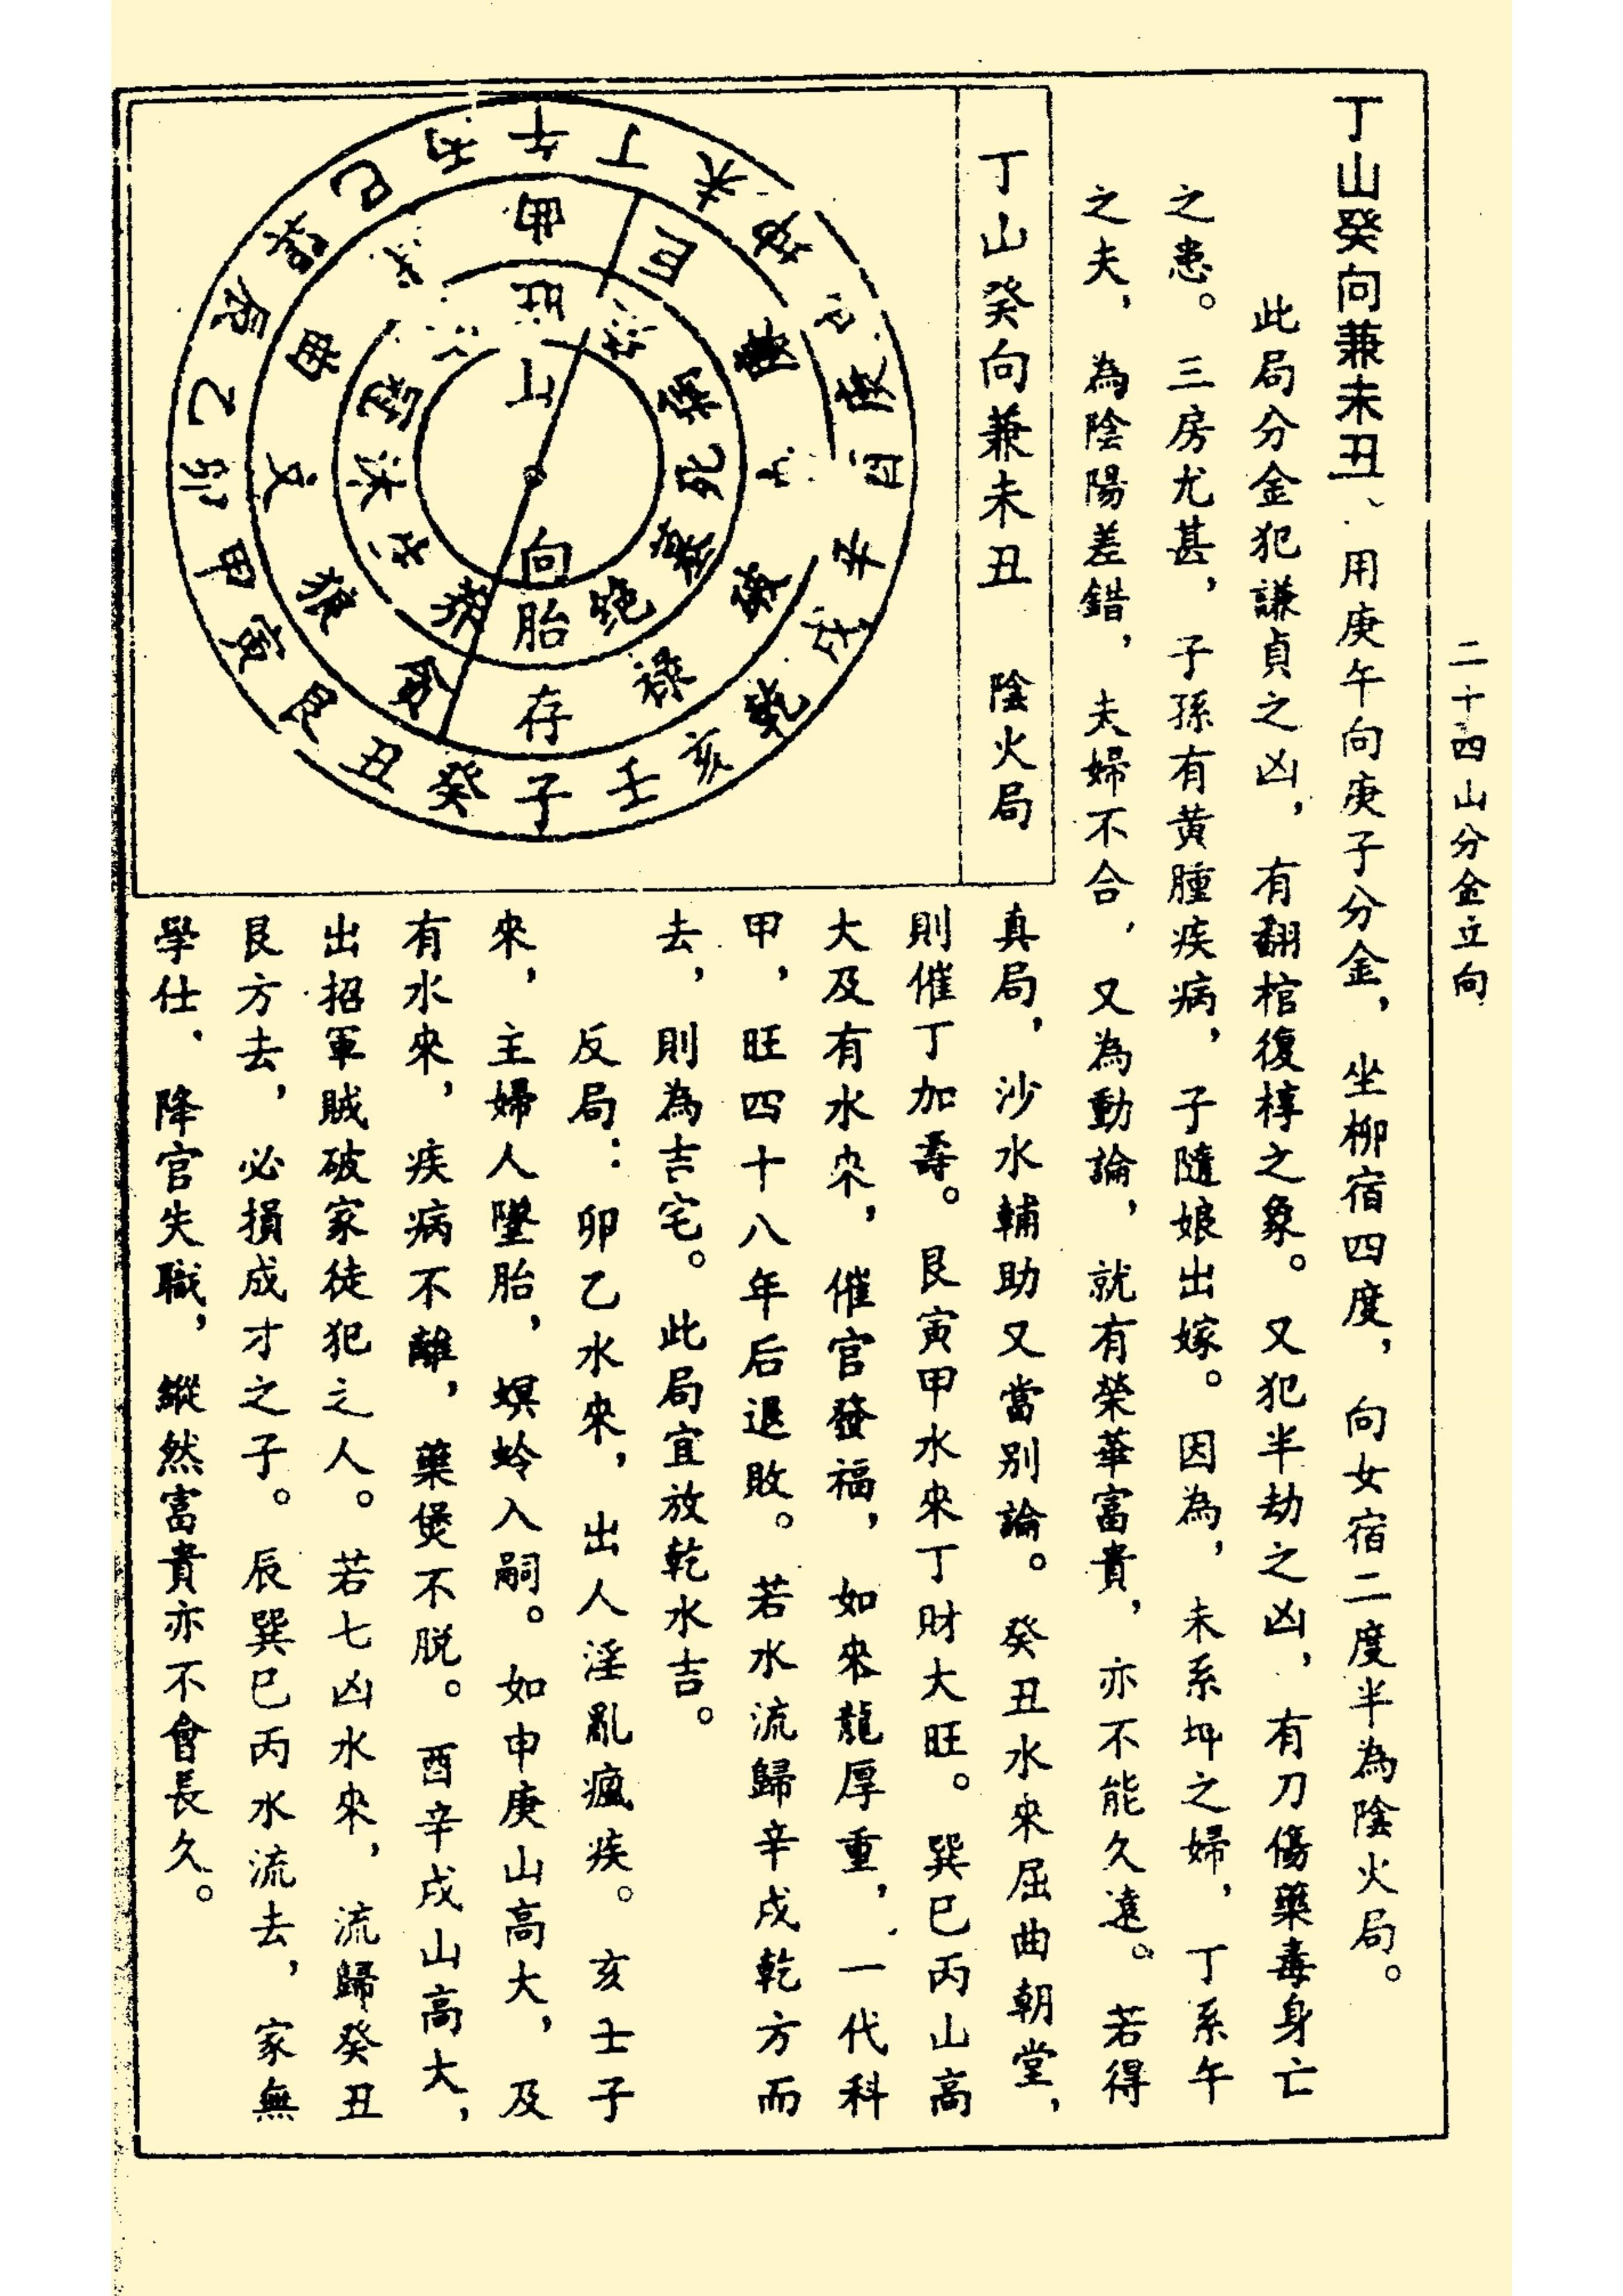 二十四山分金立向
丁山癸向兼未丑、用庚午向庚子分金，坐柳宿四度，向女宿二度半為陰火局。
此局分金犯謙貞之凶，有翻棺復椁之象。又犯半劫之凶，有刀傷藥毒身亡
之患。三房尤甚，子孫有黃腫疾病，子隨娘出嫁。因為，未系坤之婦，丁系午
之夫，為陰陽差錯，夫婦不合，又為動論，就有榮華富貴，亦不能久遠。若得
丁山癸向兼未丑 陰火局
山
向
旺
病
死
墓
絕
胎
養
沐
冠
甫
巨
文
存
祿
丁
未
庚
酉
辛
乾
亥
壬
子
癸
丑
艮
寅
甲
卯
乙
辰
巽
巳
丙
午
真局，沙水輔助又當別論。癸丑水來屈曲朝堂，
則催丁加壽。艮寅甲水來丁財大旺。巽巳丙山高
大及有水來，催官發福，如來龍厚重，一代科
甲，旺四十八年后退敗。若水流歸辛戌乾方而
去，則為吉宅。此局宜放乾水吉。
反局：卯乙水來，出人淫亂瘋疾。亥士子
來，主婦人墜胎，螟蛉入嗣。如申庚山高大，及
有水來，疾病不離，藥煲不脱。酉辛戌山高大，
出招軍賊破家徒犯之人。若七凶水來，流歸癸丑
艮方去，必損成才之子。辰巽巳丙水流去，家無
學仕，降官失職，縱然富貴亦不會長久。